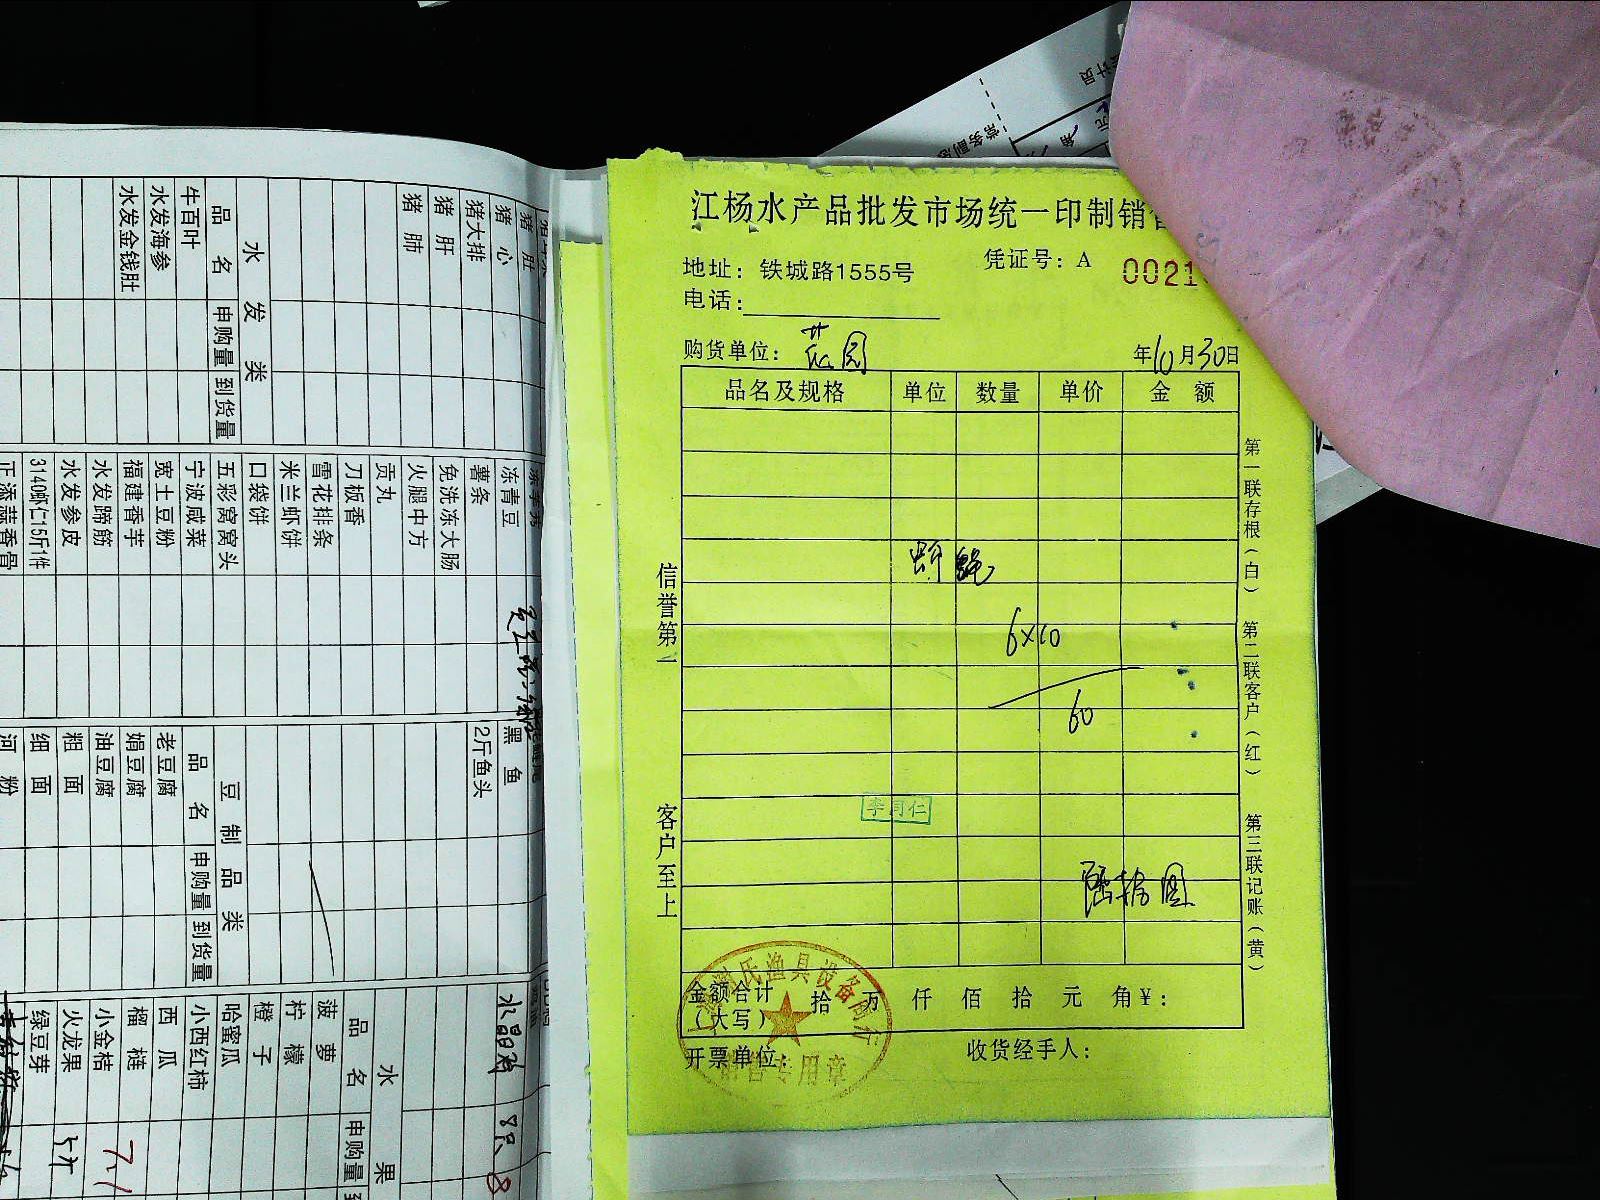 江杨水产品批发市场统一印制销售
地址：铁城路1555号
凭证号：A
0021
电话：
购货单位：花园
年10月30日
品名及规格 单位 数量 单价 金额
6×10
60
李同仁
陆拾圆
金额合计（大写） 拾 万 仟 佰 拾 元 角¥：
开票单位：
收货经手人：
信誉第一
客户至上
第一联存根（白）
第二联客户（红）
第三联记账（黄）
氏渔具设备商行
销售专用章
猪肚
猪心
猪大排
猪肝
猪肺
水发类
品名 申购量 到货量
牛百叶
水发海参
水发金钱肚
冻青豆
薯条
免洗冻大肠
火腿中方
贡丸
刀板香
雪花排条
米兰虾饼
口袋饼
五彩窝窝头
宁波咸菜
宽土豆粉
福建香芋
水发蹄筋
水发参皮
3140虾仁15斤1件
正添蒜香骨
黑鱼
2斤鱼头
豆制品类
品名 申购量 到货量
老豆腐
娟豆腐
油豆腐
粗面
细面
河粉
8只
8
水果
品名 申购量
菠萝
柠檬
橙子
哈蜜瓜
小西红柿
西瓜
榴梿
小金桔
火龙果
绿豆芽
常务副总